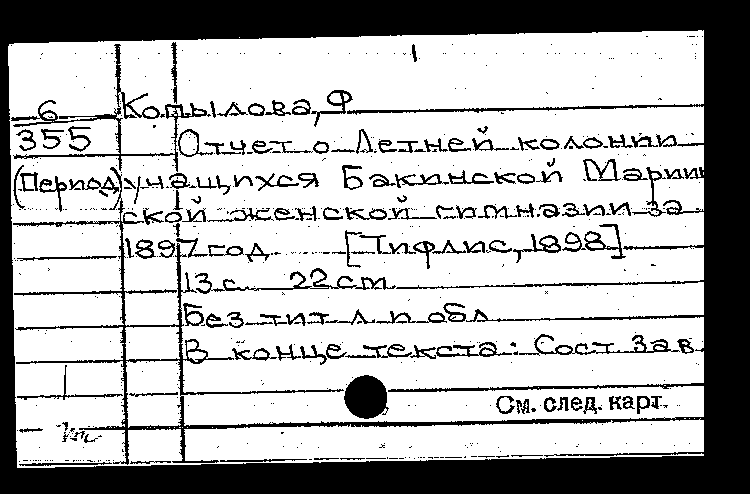 6 Копылова, Ф
355 Отчет о Летней колонии
(Период) учащихся Бакинской Мариин
ской женской гимназии за
1897 год [Тифлис, 1898]
13 с. 22 cm
Без тит л и обл
В конце текста: Сост Зав.
См. след. карт.